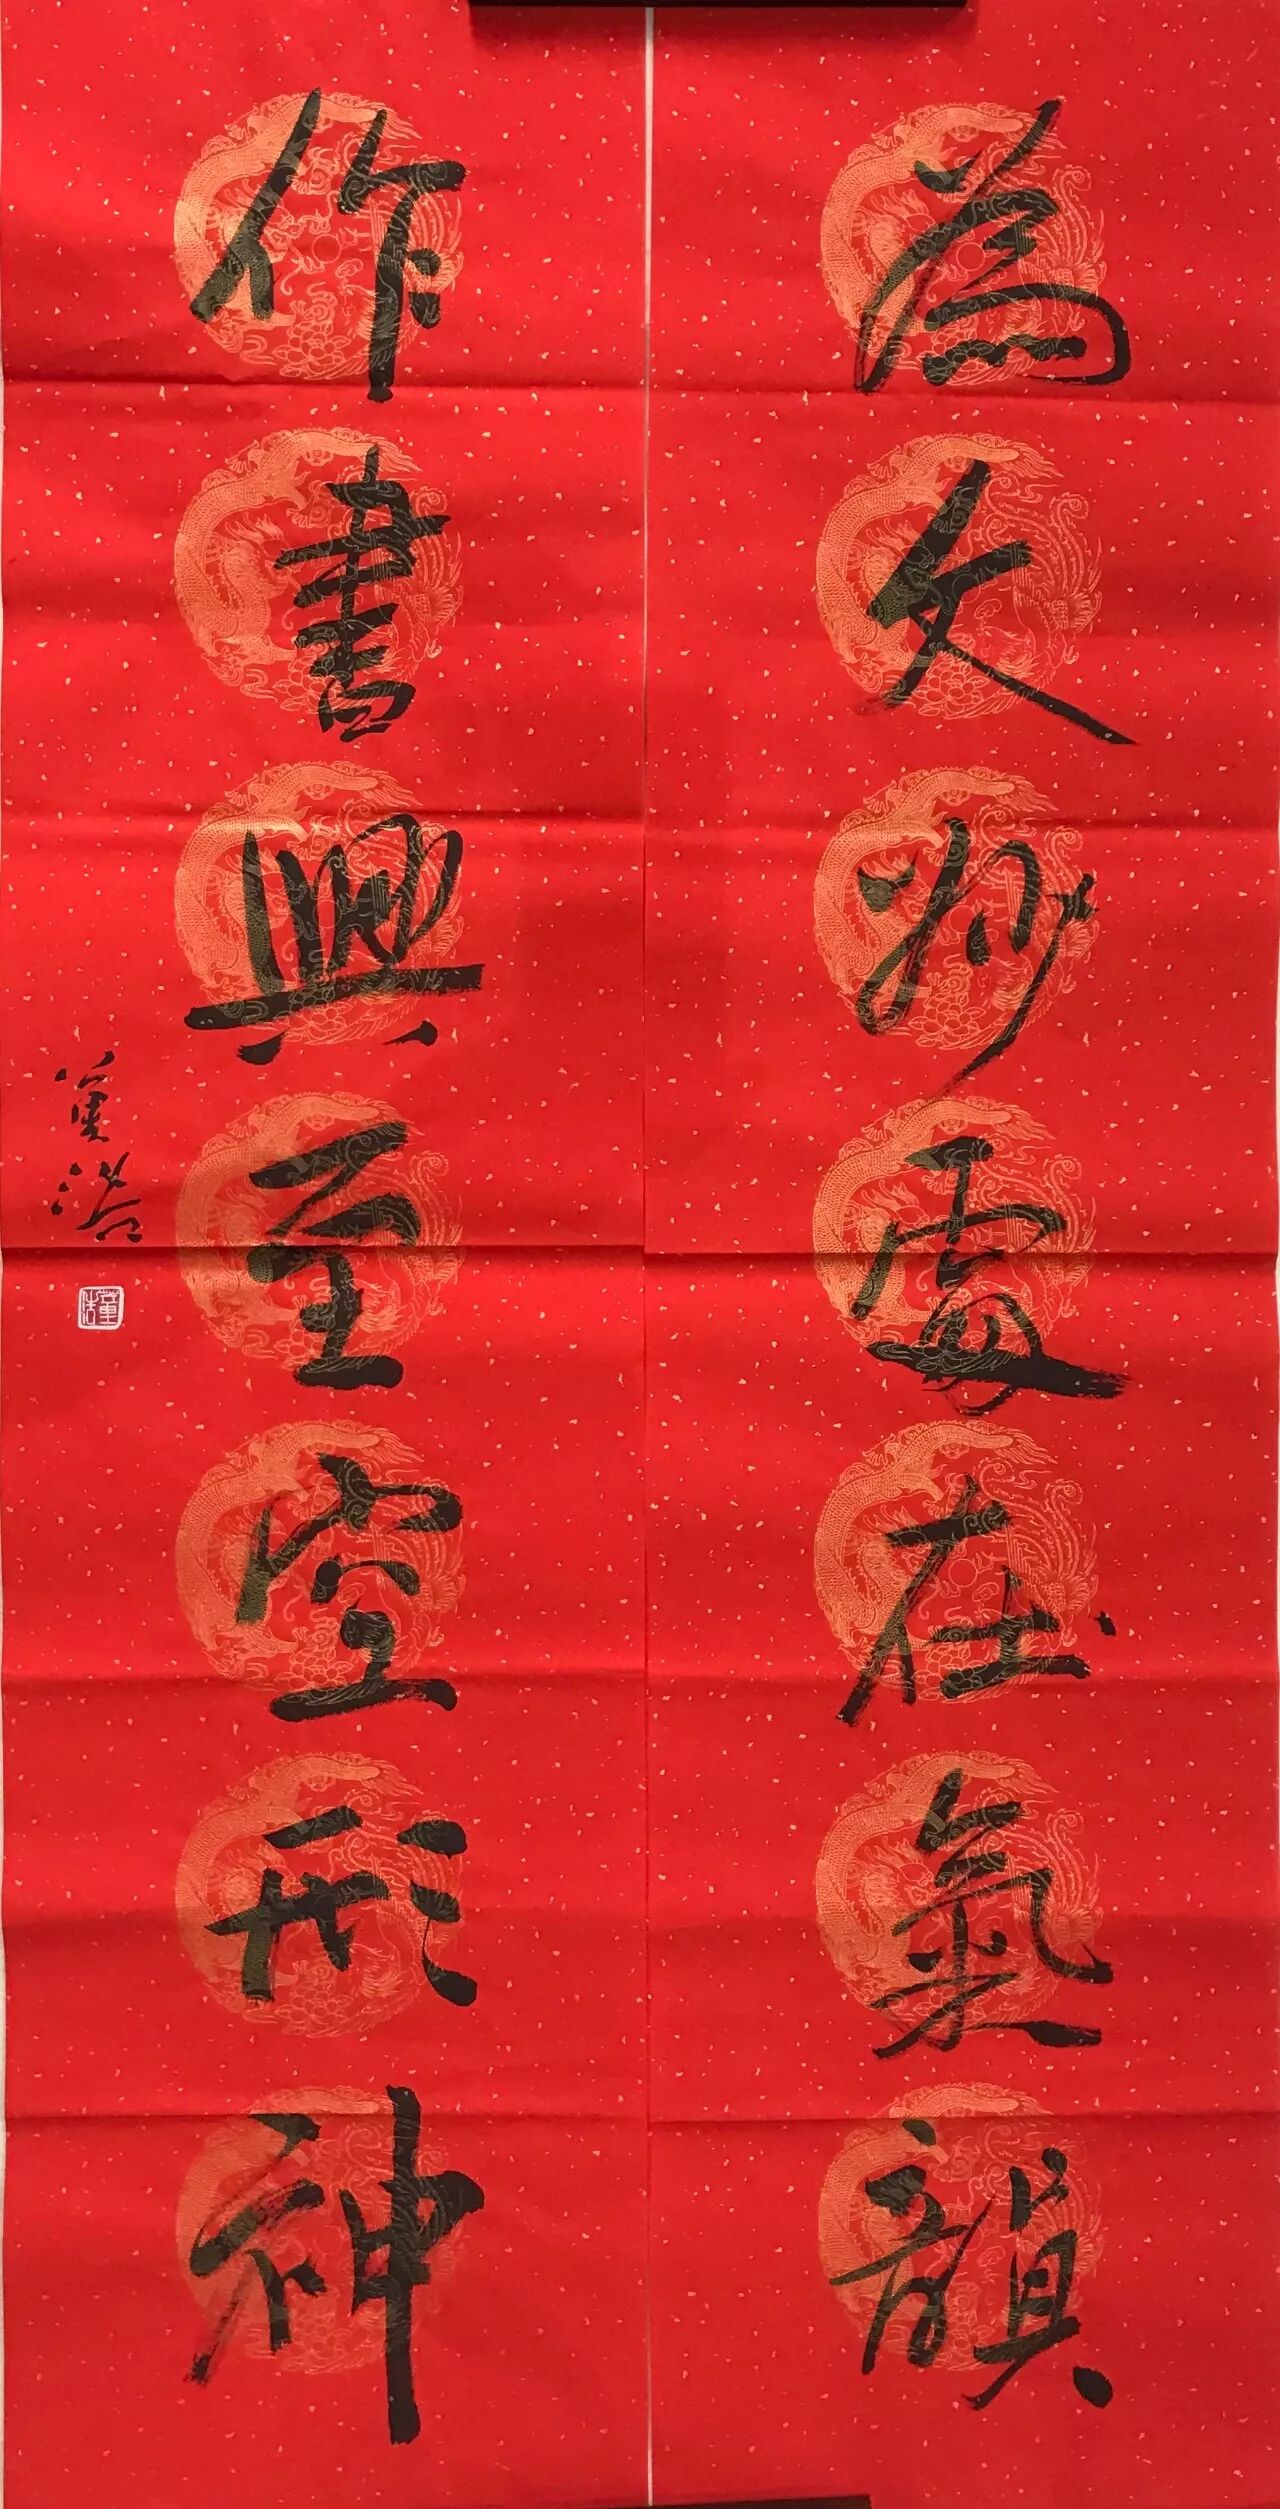 為文妙處在氣韻
作書興至空形神
董浩
董浩